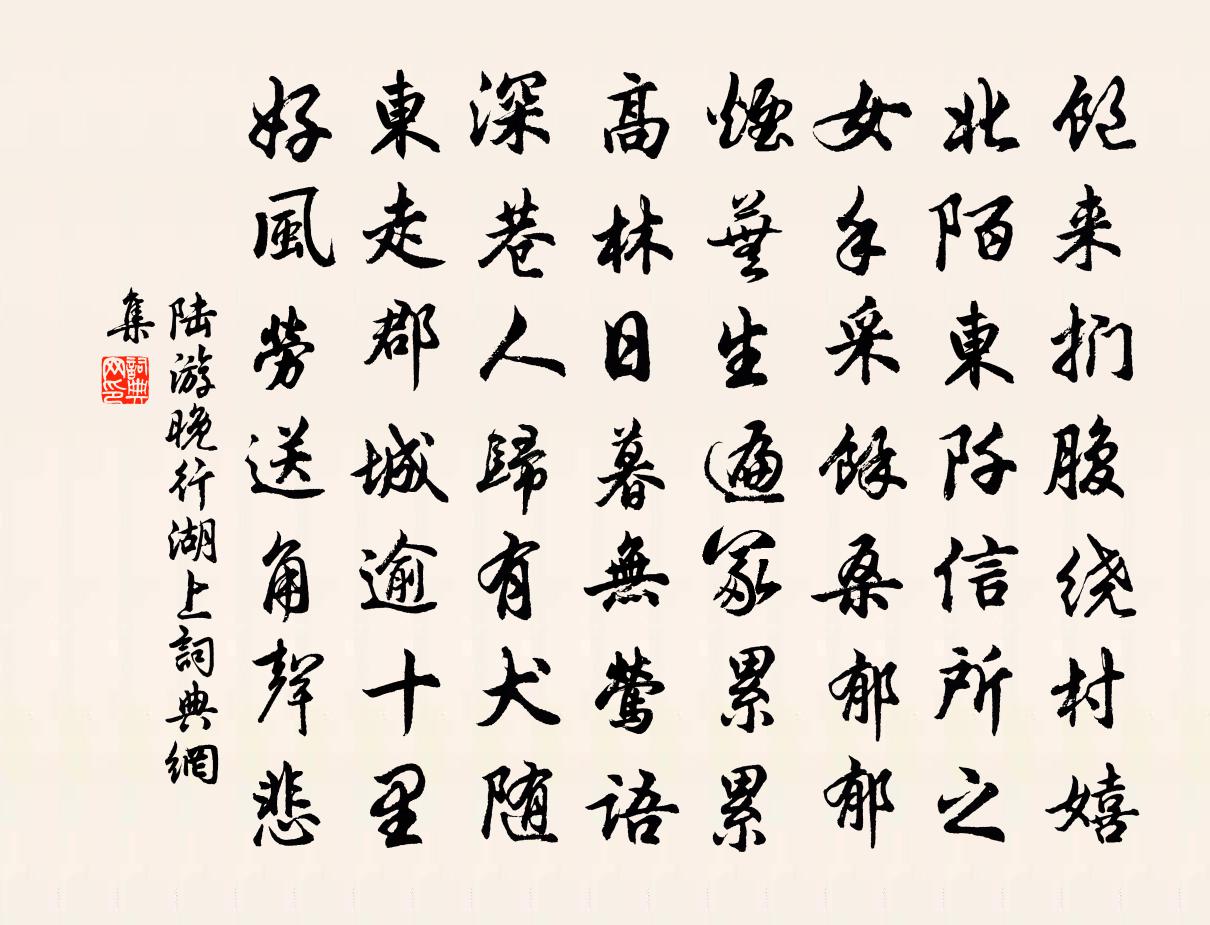 飽来捫腹绕村嬉
北陌東阡信所之
女手采餘桑郁郁
煙蕪生遍冢累累
高林日暮無鶯語
深巷人歸有犬随
東走郡城逾十里
好風勞送角聲悲
陆游晚行湖上詞典網
集
詞典网印